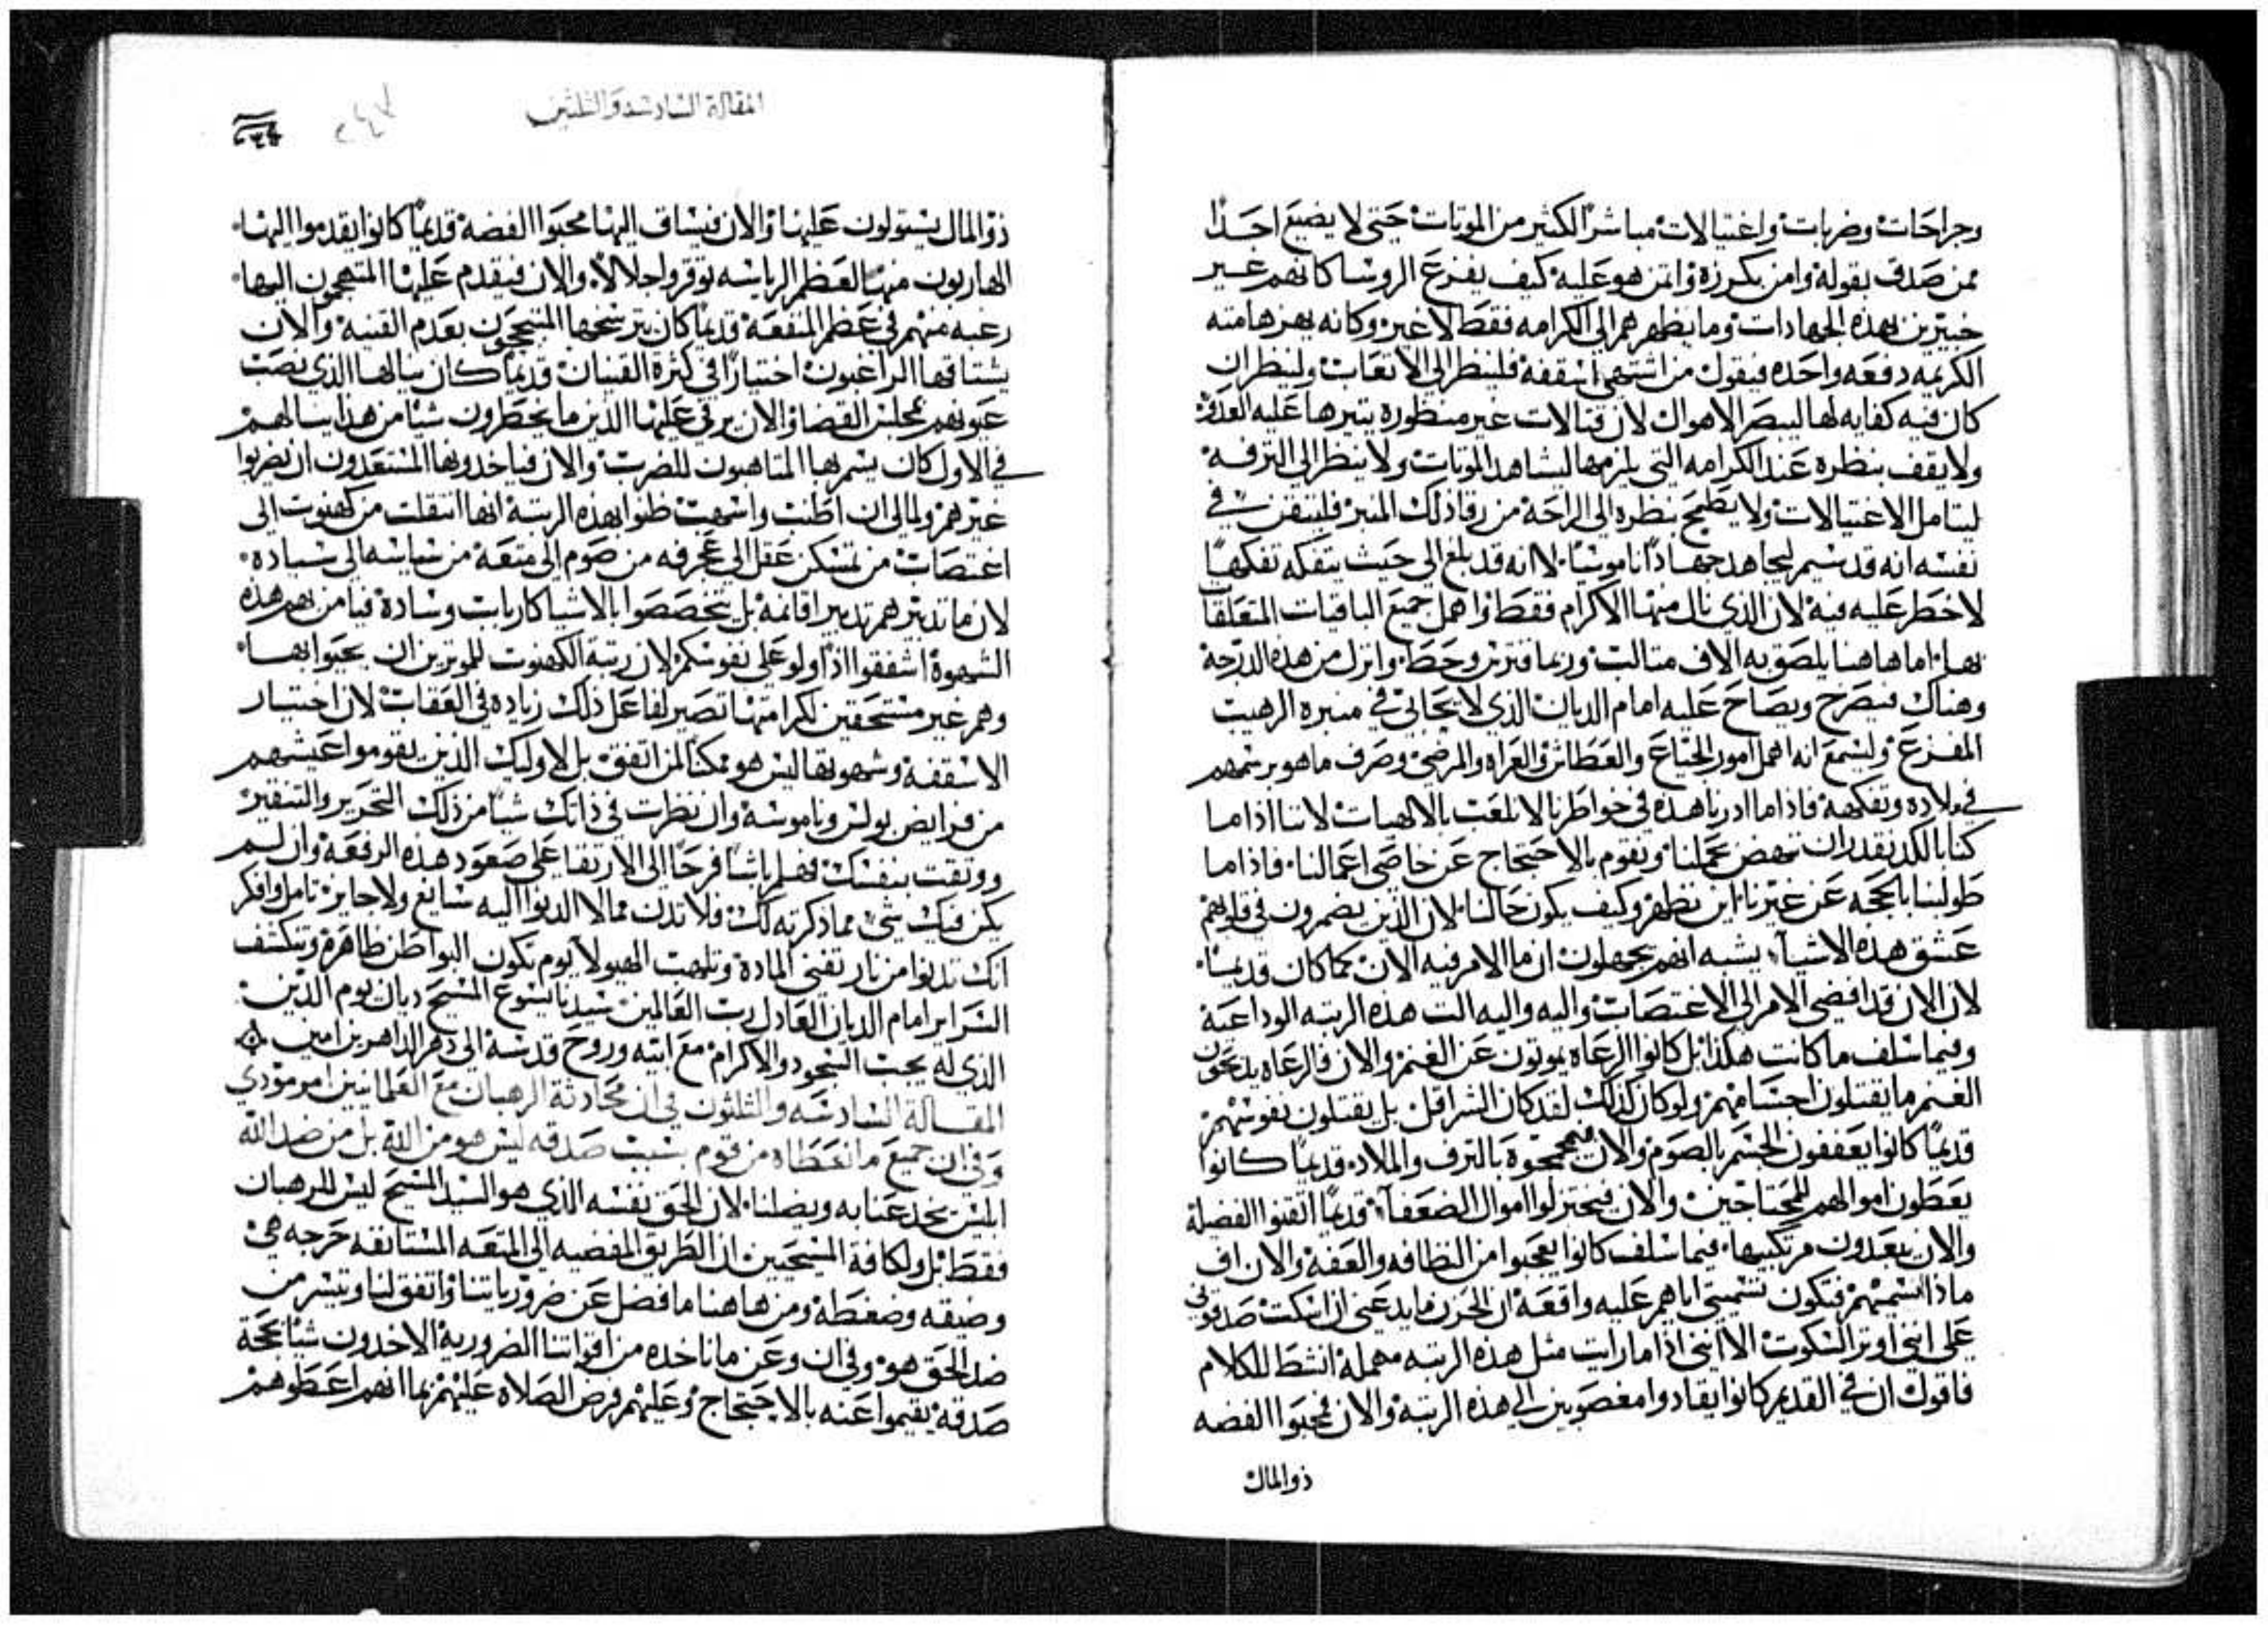 وجراحات وضربات واغتيالات مباشرًا لكثير من الموتات حتى لا يضيع احدًا
ممن صدق بقوله وامن بكرزه واتمن هو عليه كيف يفزع الروسا كانهم غير
خبيرين بهذه الجهادات وما يظهر همر الى الكرامه فقط لا غير وكانه يهزهامته
الكريمه دفعه واحده فيقول من اشتهى اسقفه فلينظر الى الاتعاب ولينظر ان
كان فيه كفايه لها ليبصر الاهوال لان قتالات غير منظوره يتيرها عليه العدو
ولا يقف بنظره عند الكرامه التي يلزمها ليشاهد الموتات ولا ينظر الى الترفه
ليتامل الاغتيالات ولا يطمح بنظره الى الراحه من رقاد لك المنبر فليتقن في
نفسه انه قد سيم ليجاهد جهادًا ناموسيًا لا انه قد بلغ الى حيث يتفكه تفكهًا
لا خطر عليه فيه لان الذي نال منها الاكرام فقط واهمل جميع الباقيات المتعلقات
بها اما هاهنا يلصق به الاف مثالب وربما فترين وحط وانزل من هذه الدرجه
وهناك فيصرخ ويصاح عليه امام الديان الذي لا يحابي في منبره الرهيب
المفزع وليسمع انه اهمل امور الجياع والعطاش والعراه والمرضى وصرف ما هو برسمهم
في ملاده وتفكهه فاذا ما ادرنا هذه في خواطرنا لا نلعب بالالهيات لاننا اذا ما
كنا بالكد نقدر ان ننهض بحملنا ونقوم بالاحتجاج عن خاصي اعمالنا فاذا ما
طولبنا بالحجه عن غيرنا اين نظهر وكيف يكون حالنا لان الذين يضمرون في قلوبهم
عشق هذه الاشياء يشبه انهم يجهلون ان ما الامر فيه الان كما كان قديمًا
لان الان قد افضى الامر الى الاغتصاب واليه واليه الت هذه الرتبه الوداعية
وفيما سلف ما كانت هكذا بل كانوا الرعاه يموتون عن الغنم والان فالرعاه يدبحون
الغنم ما يقتلون اجسامهم ولو كان كذلك لقد كان الشر اقل بل يقتلون نفوسهم
قديمًا كانوا يعففون الجسم بالصوم والان بالترف والملاد قديمًا كانوا
يعطون اموالهم للمحتاجين والان فيختزلوا اموال الضعفاء قديمًا اقتنوا الفضيلة
والان يبعدون مرتكبيها فيما سلف كانوا يعجبوا من النظافه والعفه والان اف
ماذا اسميهم فتكون تسميتي اياهم عليه واقعة ان الحزن ما يدعني ان اسكت صدقوني
على انني اوثر السكوت الا انني اذا ما رايت مثل هذه الرتبه مهملة انشط للكلام
فاقول ان في القديم كانوا يقادوا مغصوبين الى هذه الرتبه والان فمحبوا الفضه
ذو المال
المقالة السادسة والثلثين
ذو المال يستولون عليها والان فيساق اليها محبوا الفضه قديمًا كانوا يقدموا اليها
الهاربون منها لعظم الرياسه توقر واجلالًا والان فيقدم عليها المتهجمون اليها
رغبه منهم في عظم المنفعه قديمًا كان يترشحها المتبجحون بعدم القنيه والان
يشتاقها الراغبون اختيارًا في كثرة القنيان قديمًا كان ينالها الذي نصب
عيونهم مجلس القضا والان يرقى عليها الذين ما يخطرون شيًا من هذا ببالهم
في الاول كان يسمر بها المتاهبون للضرب والان فياخدونها المستعدون ان يضربوا
غيرهم ولمالي ان اطنب واسهب ظنوا بهذه الرتبة انها انتقلت من كهنوت الى
اغتصاب من تمسكن عقل الى عجرفه من صوم الى متعه من سايسه الى سياده
لان ما تدبيرهم تدبير اقانمه بل تخصصوا بالاشيا كارباب وسادة فيا من بهم هذه
الشهوة اشفقوا اذًا ولو على نفوسكم لان رتبة الكهنوت للموترين ان يحيوا بها
وهم غير مستحقين لكرامتها تصير لفاعل ذلك زياده في العقاب لان اختيار
الاسقفيه وشهوتها ليس هو ممكنًا لمن اتفق بل لاوليك الذين يقوموا عيشهم
من فرايض بولس وناموسه وان نظرت في ذاتك شيًا من ذلك التحرير والتنقير
ووثقت بنفسك فهلم باشًا فرحًا الى الارتقا على صعود هذه الرفعه وان لم
يكن فيك شي مما ذكرته لك فلا تدن مما لا الدنوا اليه سايغ ولا جايز تامل وافكر
انك تدنوا من نار تفني المادة وتلهب الهيولا يوم تكون البواطن ظاهرة وتنكشف
السراير امام الديان العادل رب العالمين سيدنا يسوع المسيح ديان يوم الدين
الذي له يجب السجود والاكرام مع ابيه وروح قدسه الى دهر الداهرين امين
المقالة السادسه والثلثون في ان محادثة الرهبان مع العلمانيين امر مؤدي
وفي ان جميع ما نعطاه من قوم بسبب صدقه ليس هو من الله بل من ضد الله
المتين يخدعنا به ويضلنا لان الحق نفسه الذي هو السيد المسيح ليس للرهبان
فقط بل ولكافة المسيحيين ان الطريق المفضيه الى المتعه المستانفه حرجه هي
وضيقه وضغطة ومن هاهنا ما افضل عن ضرورياتنا واتفق لنا وتيسر من
ضد الحق هو وفي ان وعن ما ناخده من اقواتنا الضرورية الاخدون شيًا بحجة
صدقة يقيموا عنه بالاحتجاج وعليهم فرض الصلاه عليهم بما انهم اعطوهم